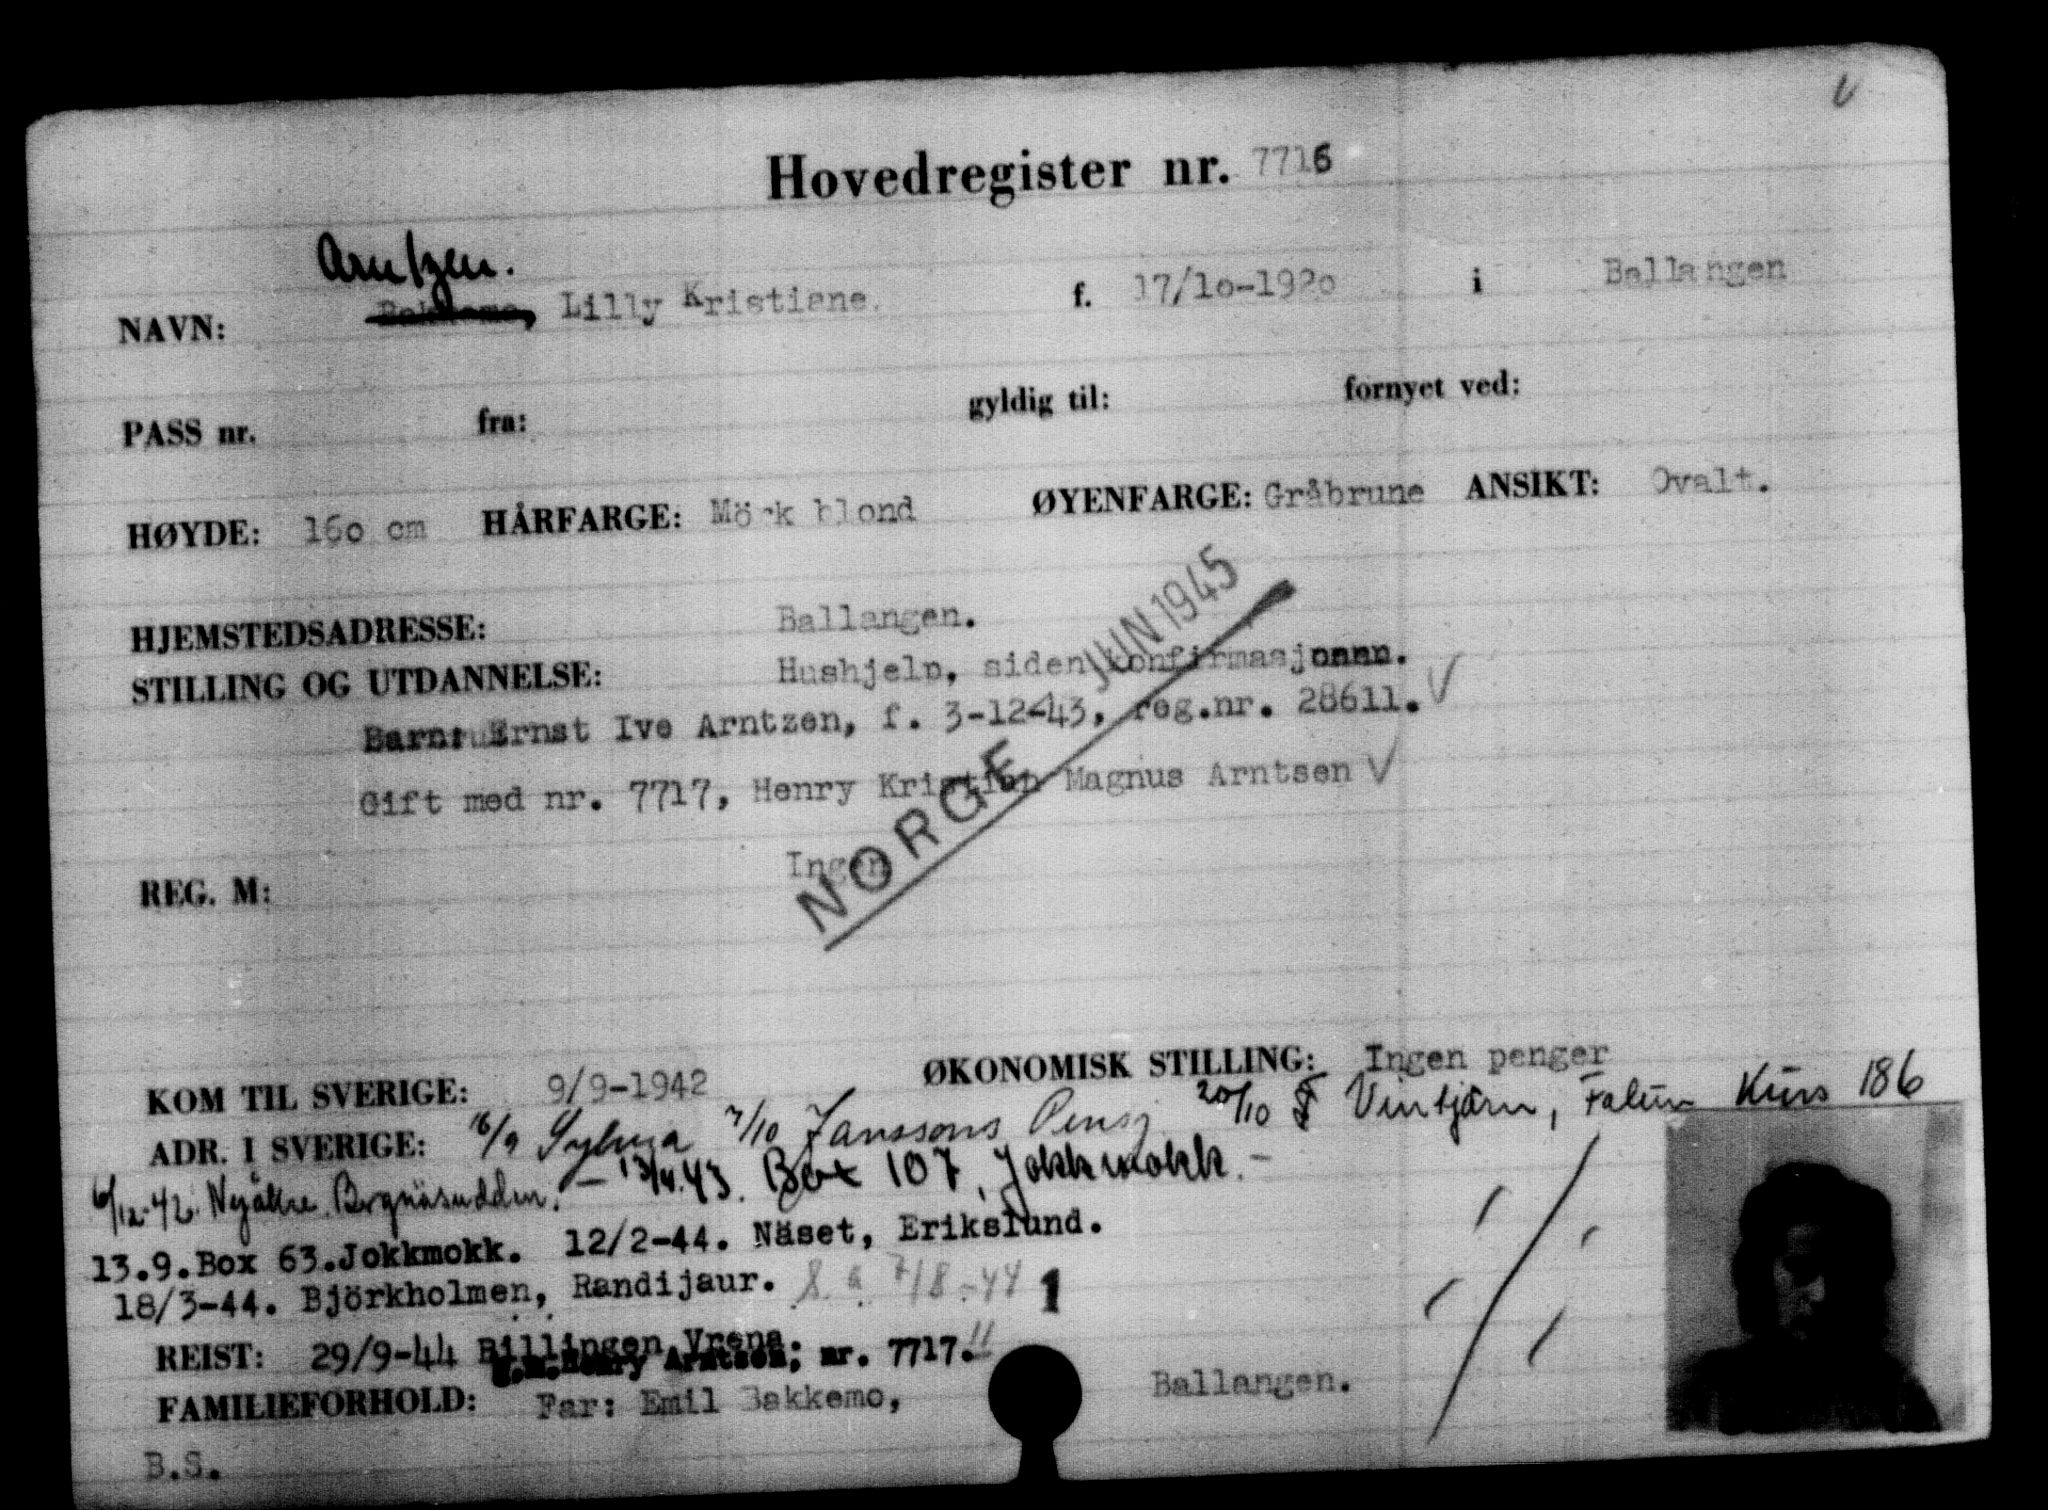 Hovedregister nr. 7716
Arntzen.
NAVN: Bakkemo, Lilly Kristiane. f. 17/10-1920 i Ballangen
PASS nr. fra: gyldig til: fornyet ved:
HØYDE: 160 cm HÅRFARGE: Mörk blond ØYENFARGE: Gråbrune ANSIKT: Ovalt.
JUN 1945
HJEMSTEDSADRESSE: Ballangen.
STILLING OG UTDANNELSE: Hushjelp, siden konfirmasjonen.
Barn: Ernst Ive Arntzen, f. 3-12-43, reg.nr. 28611.
Gift med nr. 7717, Henry Kristian Magnus Arntsen
NORGE
REG. M: Ingen
KOM TIL SVERIGE: 9/9-1942 ØKONOMISK STILLING: Ingen penger
ADR. I SVERIGE: 16/9 7/10 Janssons Pensj. 20/10 Vintjärn, Falun Kurs 186
6/12-42. Nejåkre, Bergnäsudden. - 13/4.43. Box 107, Jokkmokk. -
13.9. Box 63. Jokkmokk. 12/2-44. Näset, Erikslund.
18/3-44. Björkholmen, Randijaur. 7/8-44 1
REIST: 29/9-44 Billingen Vrena.
g.m. Henry Arntsen, nr. 7717.
FAMILIEFORHOLD: Far: Emil Bakkemo, Ballangen.
B.S.